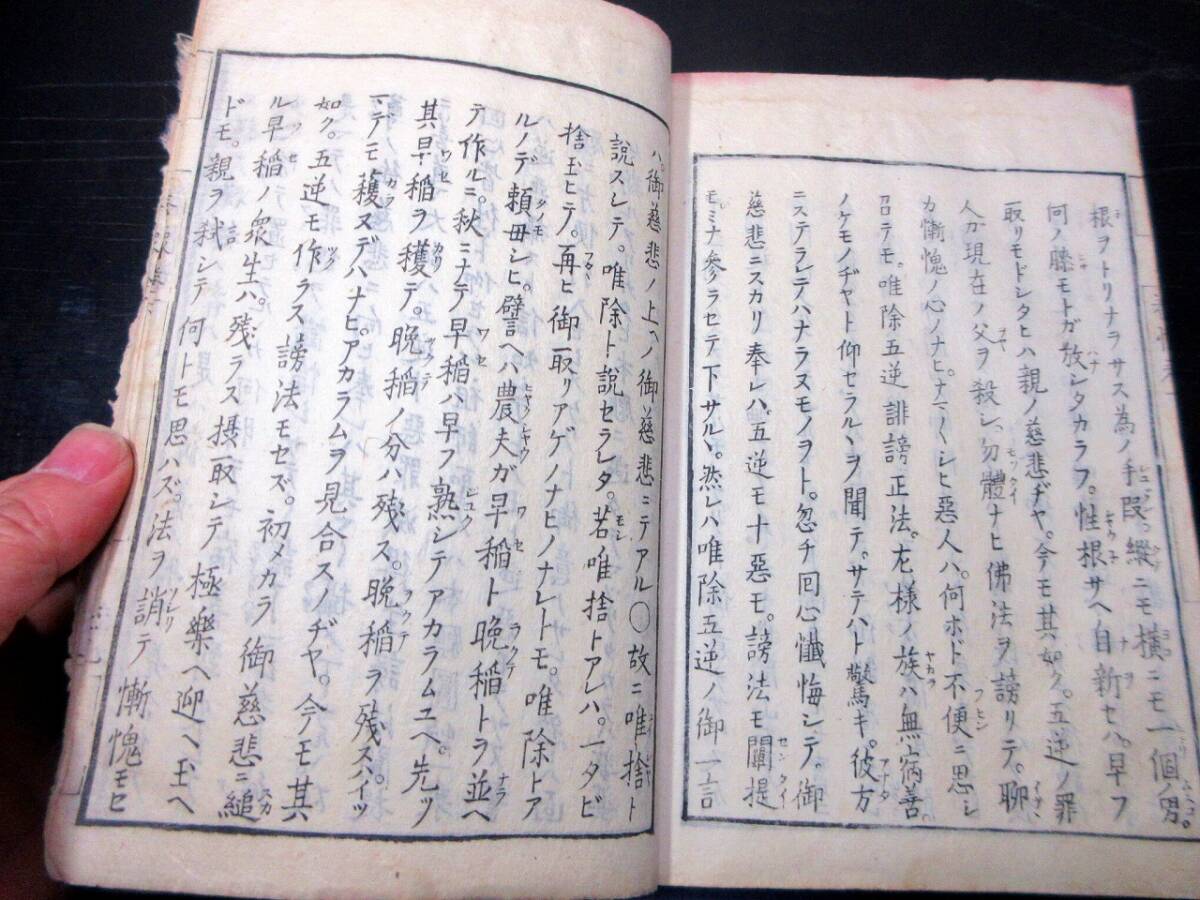 根ヲトリナラサス為ノ手段縦ニモ横ニモ一個ノ男。
何ノ膝モトガ放シタカラフ。性根サヘ自新セハ。早フ
取リモドシタヒハ親ノ慈悲ヂヤ。今モ其如ク。五逆ノ罪
人カ現在ノ父ヲ殺シ。勿體ナヒ佛法ヲ謗リテ。聊
カ慚愧ノ心ノナヒ。ナニ〱シヒ惡人ハ。何ホド不便ニ思シ
召ロテモ。唯除五逆誹謗正法。左様ノ族ハ無病善。
ノケモノヂヤト仰セラルヽヲ聞テ。サテハト驚キ。彼方
ニステラレテハナラヌモノヲト。忽チ回心懺悔シテ。御
慈悲ニスカリ奉レハ。五逆モ十惡モ。謗法モ闡提
モ。ミナ參ラセテ下サルヽ。然レハ唯除五逆ノ御一言
ハ。御慈悲ノ上ヘノ御慈悲ニテアル〇故ニ唯捨ト
説スシテ。唯除ト説セラレタ。若唯捨トアレハ。一タビ
捨玉ヒテ。再ヒ御取リアゲノナヒノナレトモ。唯除トア
ルノデ頼母シヒ。譬ヘハ農夫ガ早稲ト晩稲トヲ並ヘ
テ作ルニ。秋ニナテ早稲ハ早フ熟シテアカラムユヘ。先ツ
其早稲ヲ穫テ。晩稲ノ分ハ残ス。晩稲ヲ残スハイツ
マデモ穫ヌデハナヒ。アカラムヲ見合スノヂヤ。今モ其
如ク。五逆モ作ラス謗法モセズ。初メカラ御慈悲ニ縋
ル早稲ノ衆生ハ。残ラス摂取シテ極樂ヘ迎ヘ玉ヘ
ドモ。親ヲ弑シテ何トモ思ハズ。法ヲ誚テ慚愧モセ